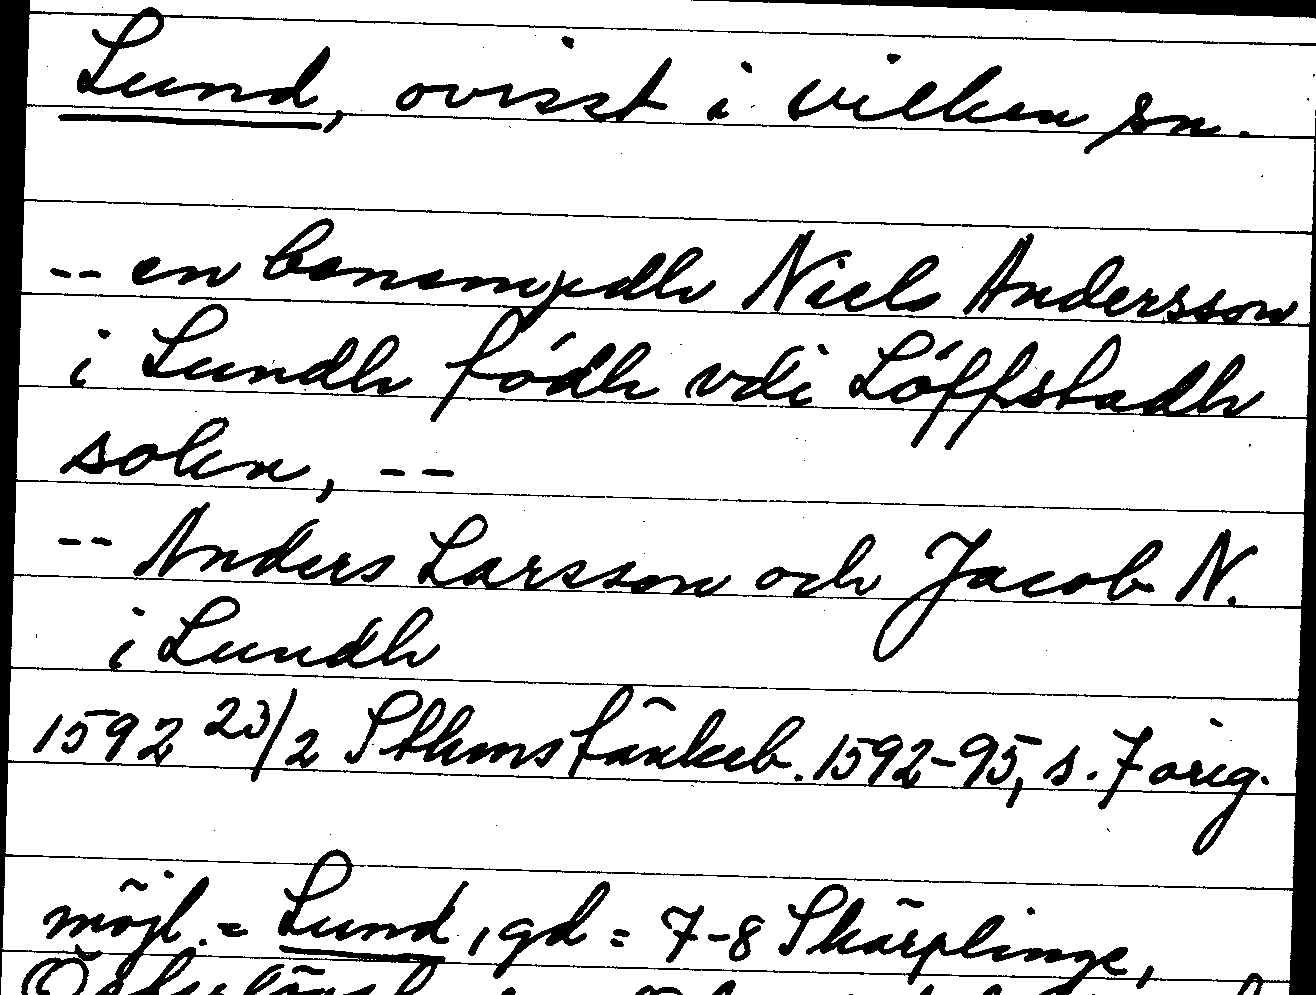 Lund, ovisst i vilken sn.
-- en benempdh Niels Andersson
i Lundh födh vdi Löffstadh
sokn, --
-- Anders Larsson och Jacob N.
i Lundh
1592 23/2 Sthms tänkeb. 1592-95, s. 7 orig.
möjl. = Lund, gd = 7-8 Skärplinge,